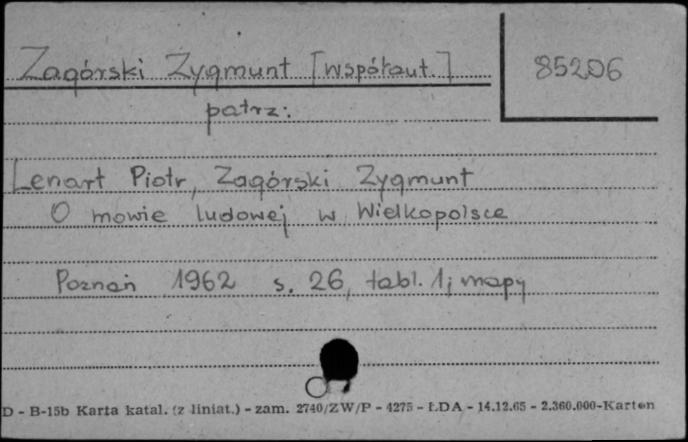 Zagórski Zygmunt [współaut.]
85206
patrz:
Lenart Piotr, Zagórski Zygmunt
O mowie ludowej w Wielkopolsce
Poznań 1962 s. 26, tabl. 1; mapy
D - B-15b Karta katal. (z liniat.) - zam. 2740/ZW/P - 4275 - ŁDA - 14.12.65 - 2.360.000-Karten